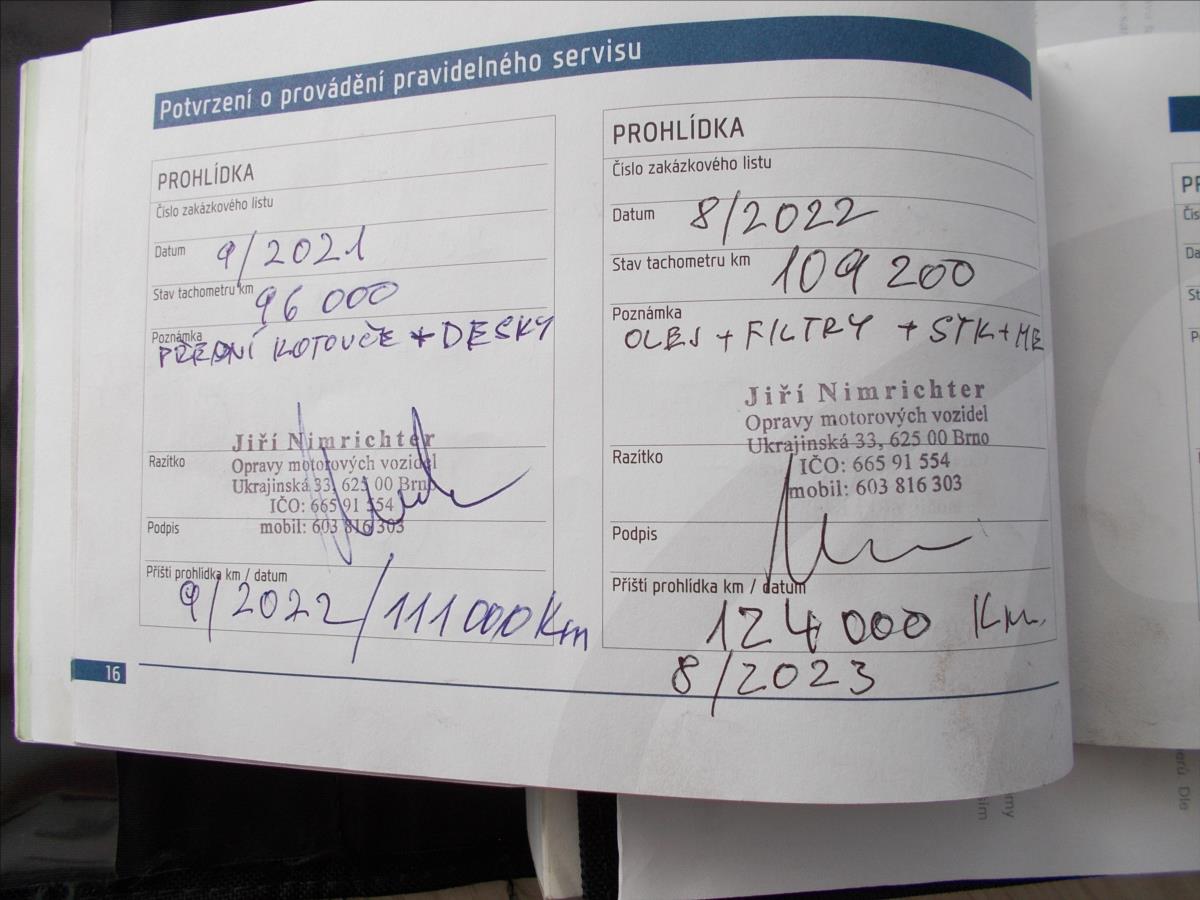 Potvrzení o provádění pravidelného servisu
PROHLÍDKA
Číslo zakázkového listu
Datum 9/2021
Stav tachometru km 96 000
Poznámka
PŘEDNÍ KOTOUČE + DESKY
Jiří Nimrichter
Opravy motorových vozidel
Ukrajinská 33, 625 00 Brno
IČO: 665 91 554
mobil: 603 816 303
Razítko
Podpis
Příští prohlídka km / datum
9/2022/111 000 Km
PROHLÍDKA
Číslo zakázkového listu
Datum 8/2022
Stav tachometru km 109 200
Poznámka
OLEJ + FILTRY + STK + ME
Jiří Nimrichter
Opravy motorových vozidel
Ukrajinská 33, 625 00 Brno
IČO: 665 91 554
mobil: 603 816 303
Razítko
Podpis
Příští prohlídka km / datum
124 000 Km.
8/2023
16